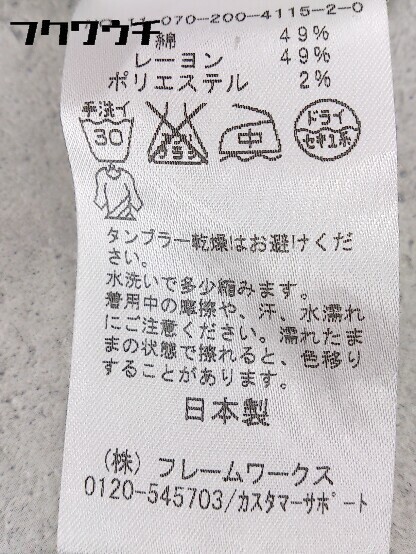 フクウウチ
11-070-200-4115-2-0
綿 49%
レーヨン 49%
ポリエステル 2%
手洗イ
30
中
ドライ
セキユ系
タンブラー乾燥はお避けくだ
さい。
水洗いで多少縮みます。
着用中の摩擦や、汗、水濡れ
にご注意ください。濡れたま
まの状態で擦れると、色移り
することがあります。
日本製
(株) フレームワークス
0120-545703/カスタマーサポート